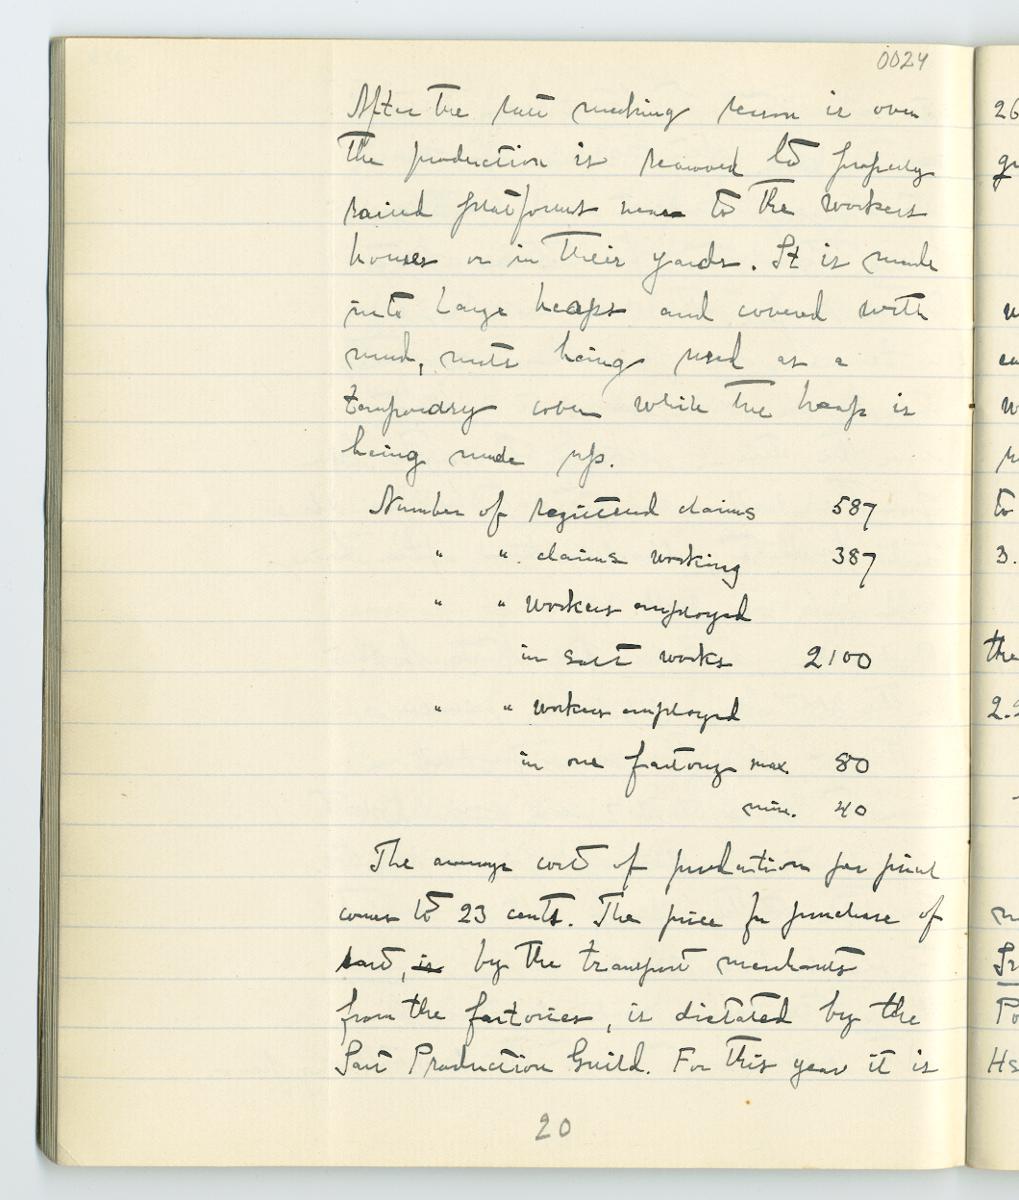 0024
After the salt making season is over
the production is removed to properly
raised platforms near to the workers
houses or in their yards. It is made
into large heaps and covered with
mud, mats being used as a
temporary cover while the heap is
being made up.
Number of registered claims 587
" " claims working 387
" " workers employed
in salt works 2100
" " workers employed
in one factory max. 80
min. 40
The average cost of production per picul
comes to 23 cents. The price for purchase of
salt, is by the transport merchants
from the factories, is dictated by the
Salt Production Guild. For this year it is
20
26
3.
to
the
Po
Hs